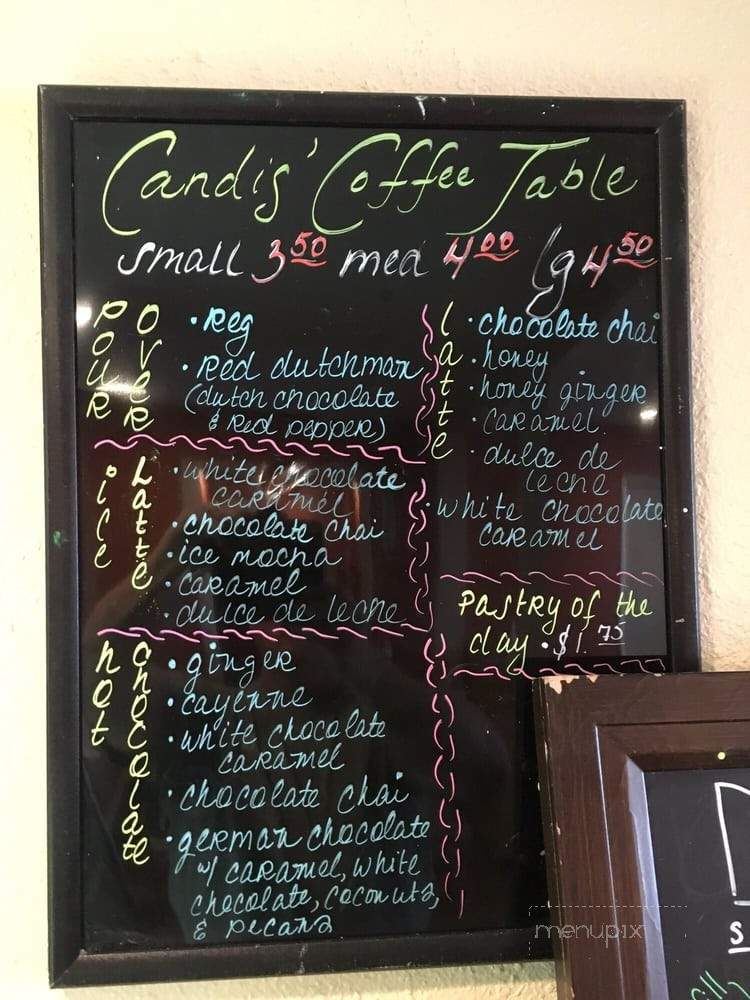 Candis' Coffee Table
small 3.50 med 4.00 lg 4.50
pour over
• Reg
• Red dutchman
(dutch chocolate
& Red pepper)
ice Latte
• white chocolate
caramel
• chocolate chai
• ice mocha
• caramel
• dulce de leche
hot chocolate
• ginger
• cayenne
• white chocolate
caramel
• chocolate chai
• german chocolate
w/ caramel, white
chocolate, coconuts,
& pecans
latte
• chocolate chai
• honey
• honey ginger
• caramel
• dulce de
leche
• white chocolate
caramel
Pastry of the
day • $1.75
menupix